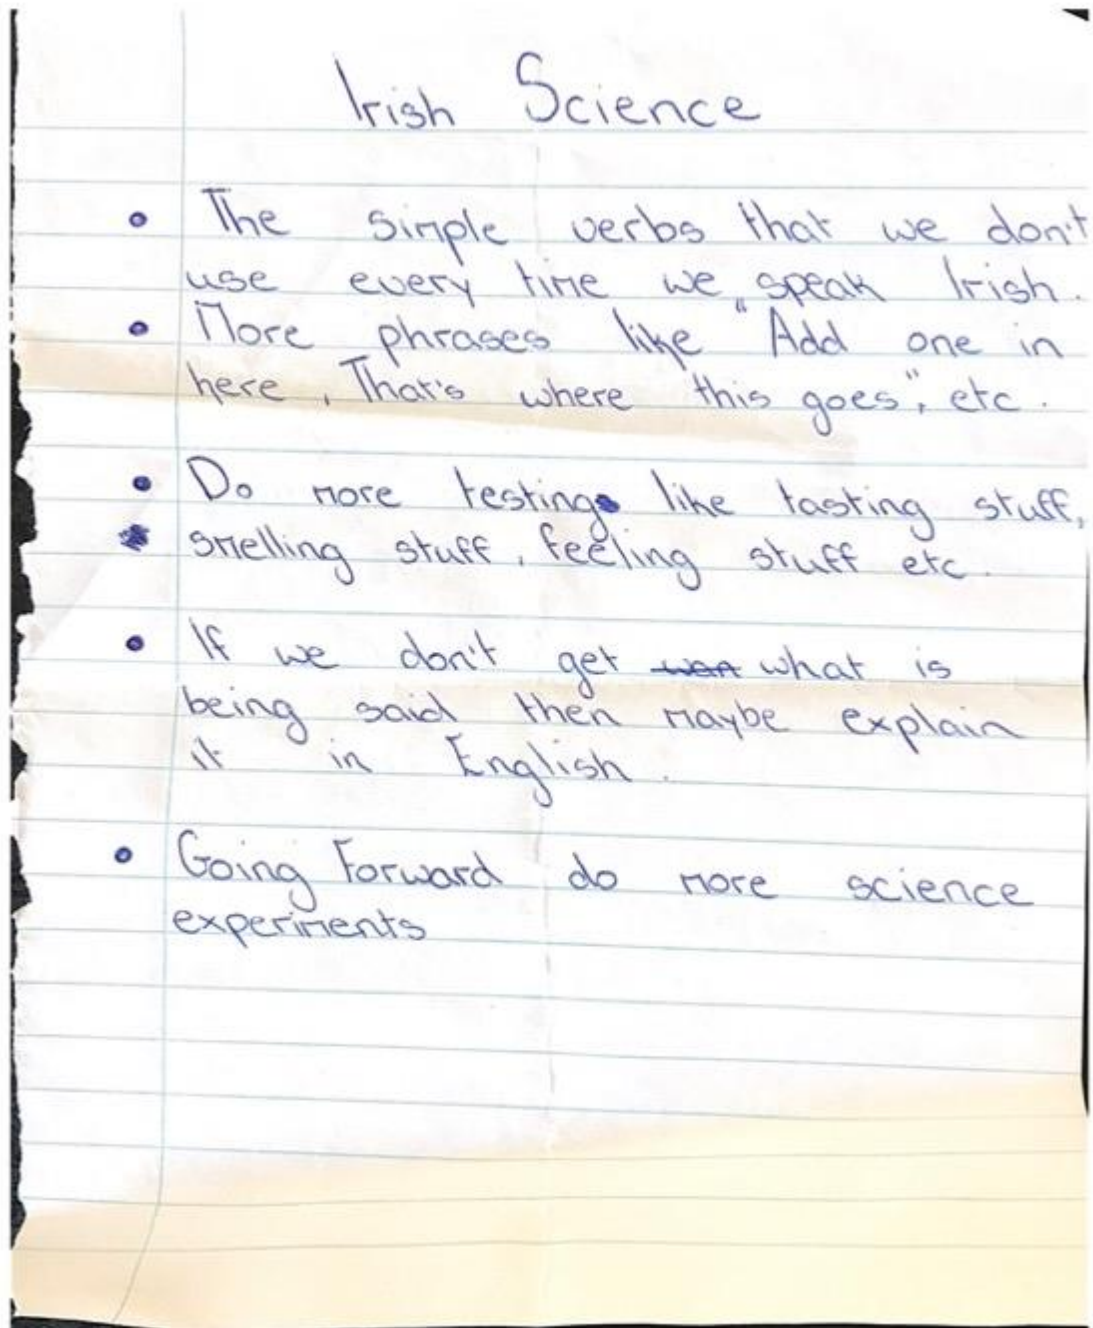 Irish Science
• The simple verbs that we don't
use every time we speak Irish.
• More phrases like "Add one in
here, That's where this goes", etc.
• Do more testing like tasting stuff,
smelling stuff, feeling stuff etc.
• If we don't get what is
being said then maybe explain
it in English.
• Going Forward do more science
experiments